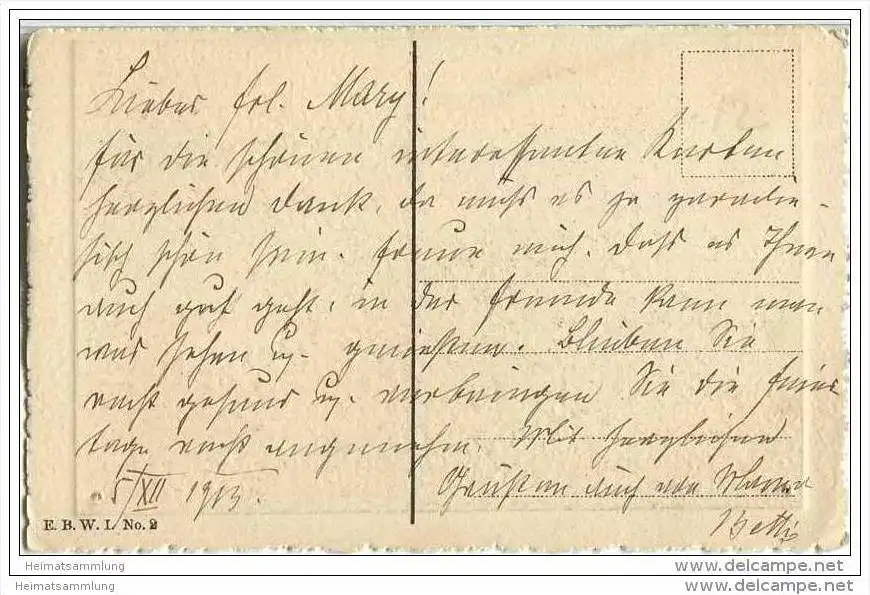 Liebes Frl. Mary!
Für die schönen interessanten Karten
herzlichen Dank, da muß es ja paradie-
sisch schön sein. Freue mich, daß es Ihnen
auch gut geht, in der Fremde kann man
was sehen u. genießen. Bleiben Sie
recht gesund u. verbringen Sie die Feier
tage recht angenehm. Mit herzlichen
Grüßen auch von Mama
Betti
5/XII 1913.
E. B. W. I. No. 2
Heimatsammlung
Heimatsammlung
www.delcampe.net
www.delcampe.net